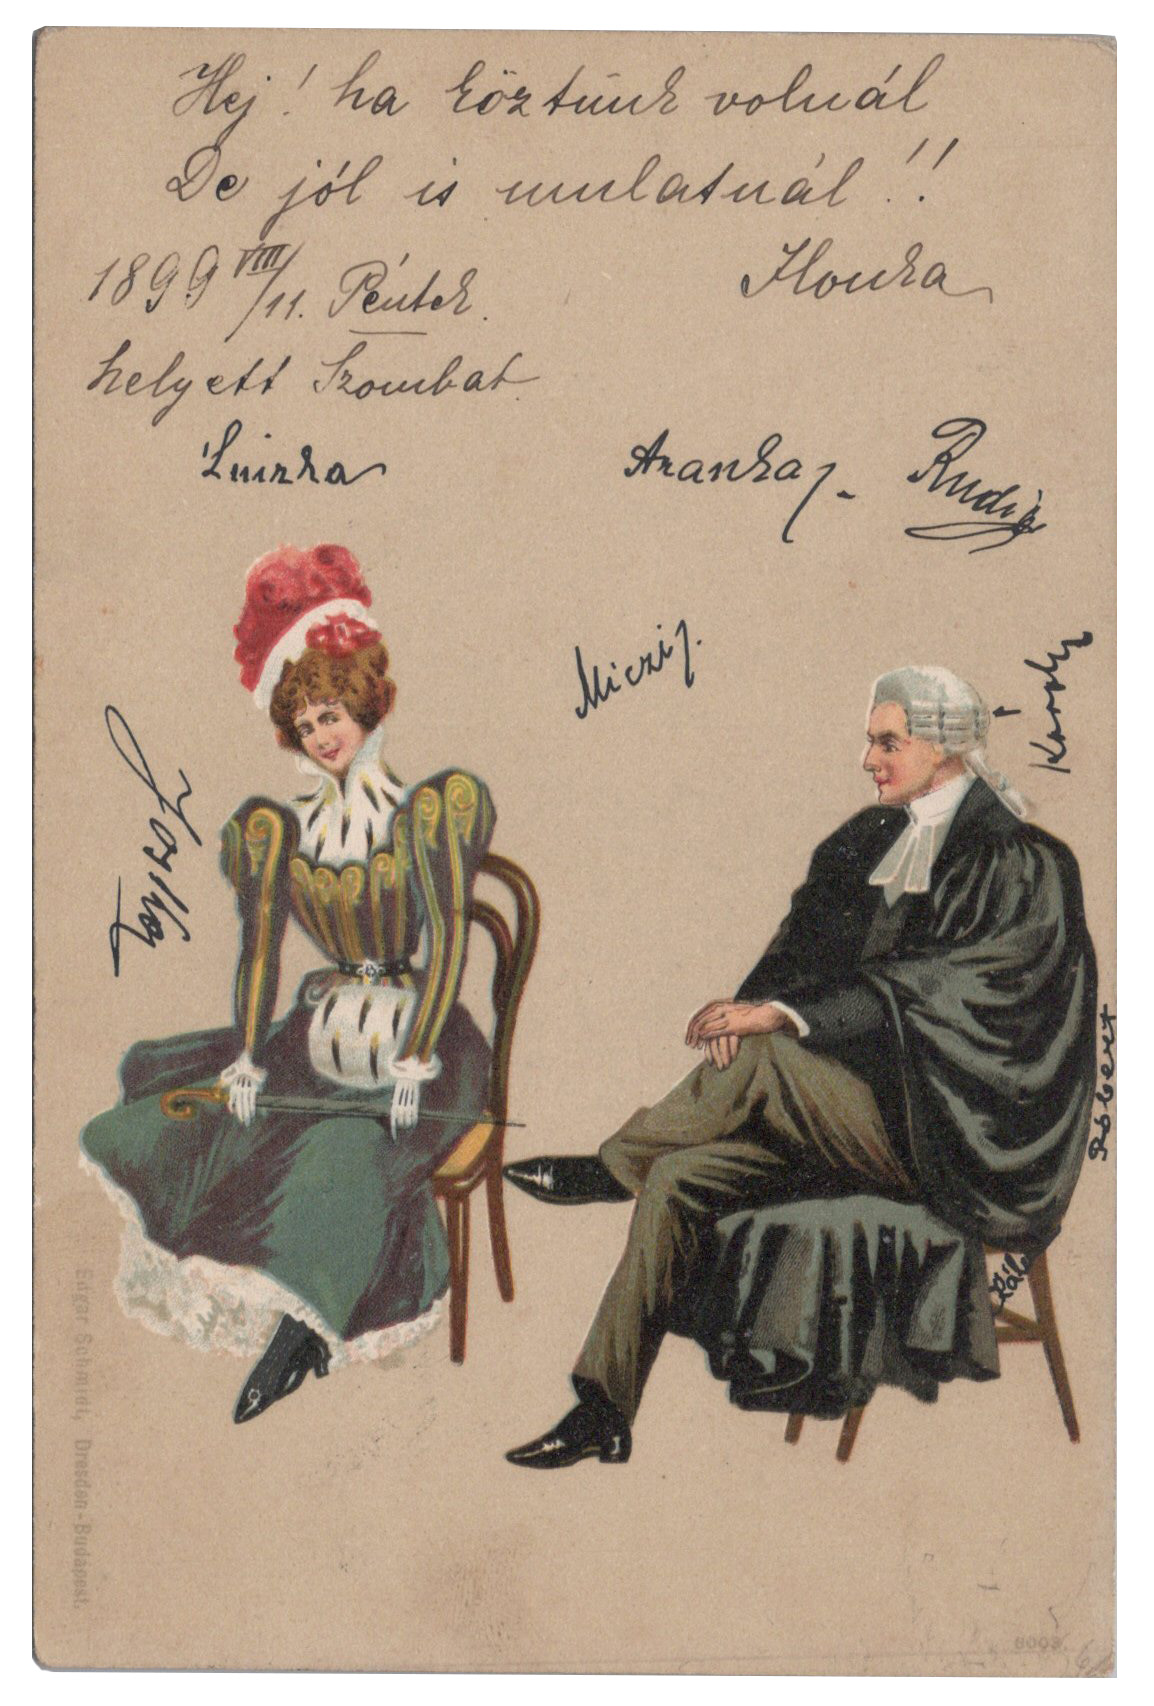 Hej! ha köztünk volnál
De jól is mulatnál!!
1899 VIII/11. Péntek.
Ilonka
helyett Szombat.
Luizka
Arankaj.
Rudi
Miczij.
Károly
Róbert
Kál
Edgar Schmidt, Dresden-Budapest.
8003.